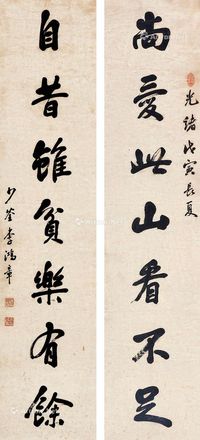 光緒戊寅長夏
尚愛此山看不足
自昔雖貧樂有餘
少荃李鴻章